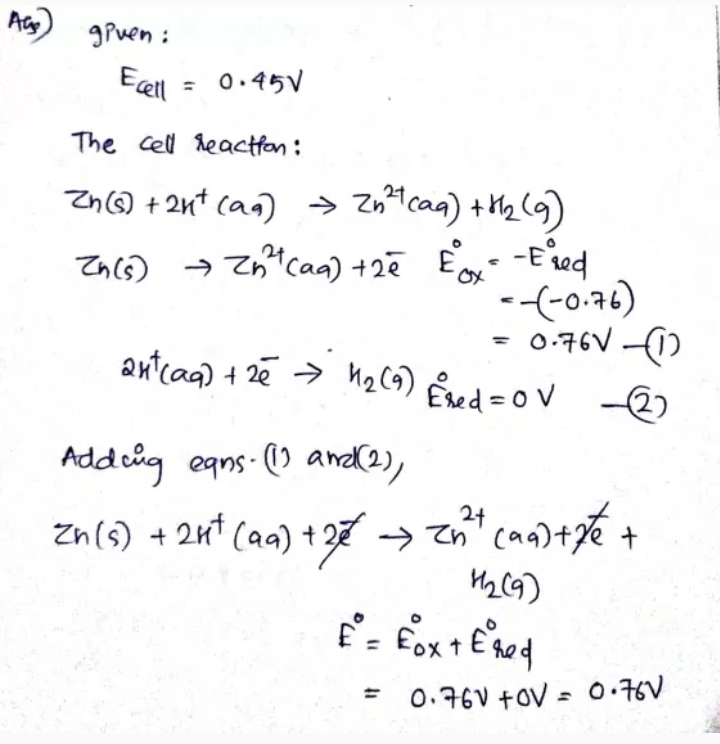 Ans) given :
Ecell = 0.45V
The cell reaction:
Zn(s) + 2H⁺ (aq) → Zn²⁺(aq) + H₂(g)
Zn(s) → Zn²⁺(aq) + 2e⁻ E°ox = -E°red
= -(-0.76)
= 0.76V —(1)
2H⁺(aq) + 2e⁻ → H₂(g) E°red = 0 V —(2)
Adding eqns. (1) and (2),
Zn(s) + 2H⁺ (aq) + 2e⁻ → Zn²⁺ (aq) + 2e⁻ +
H₂(g)
E° = E°ox + E°red
= 0.76V + 0V = 0.76V